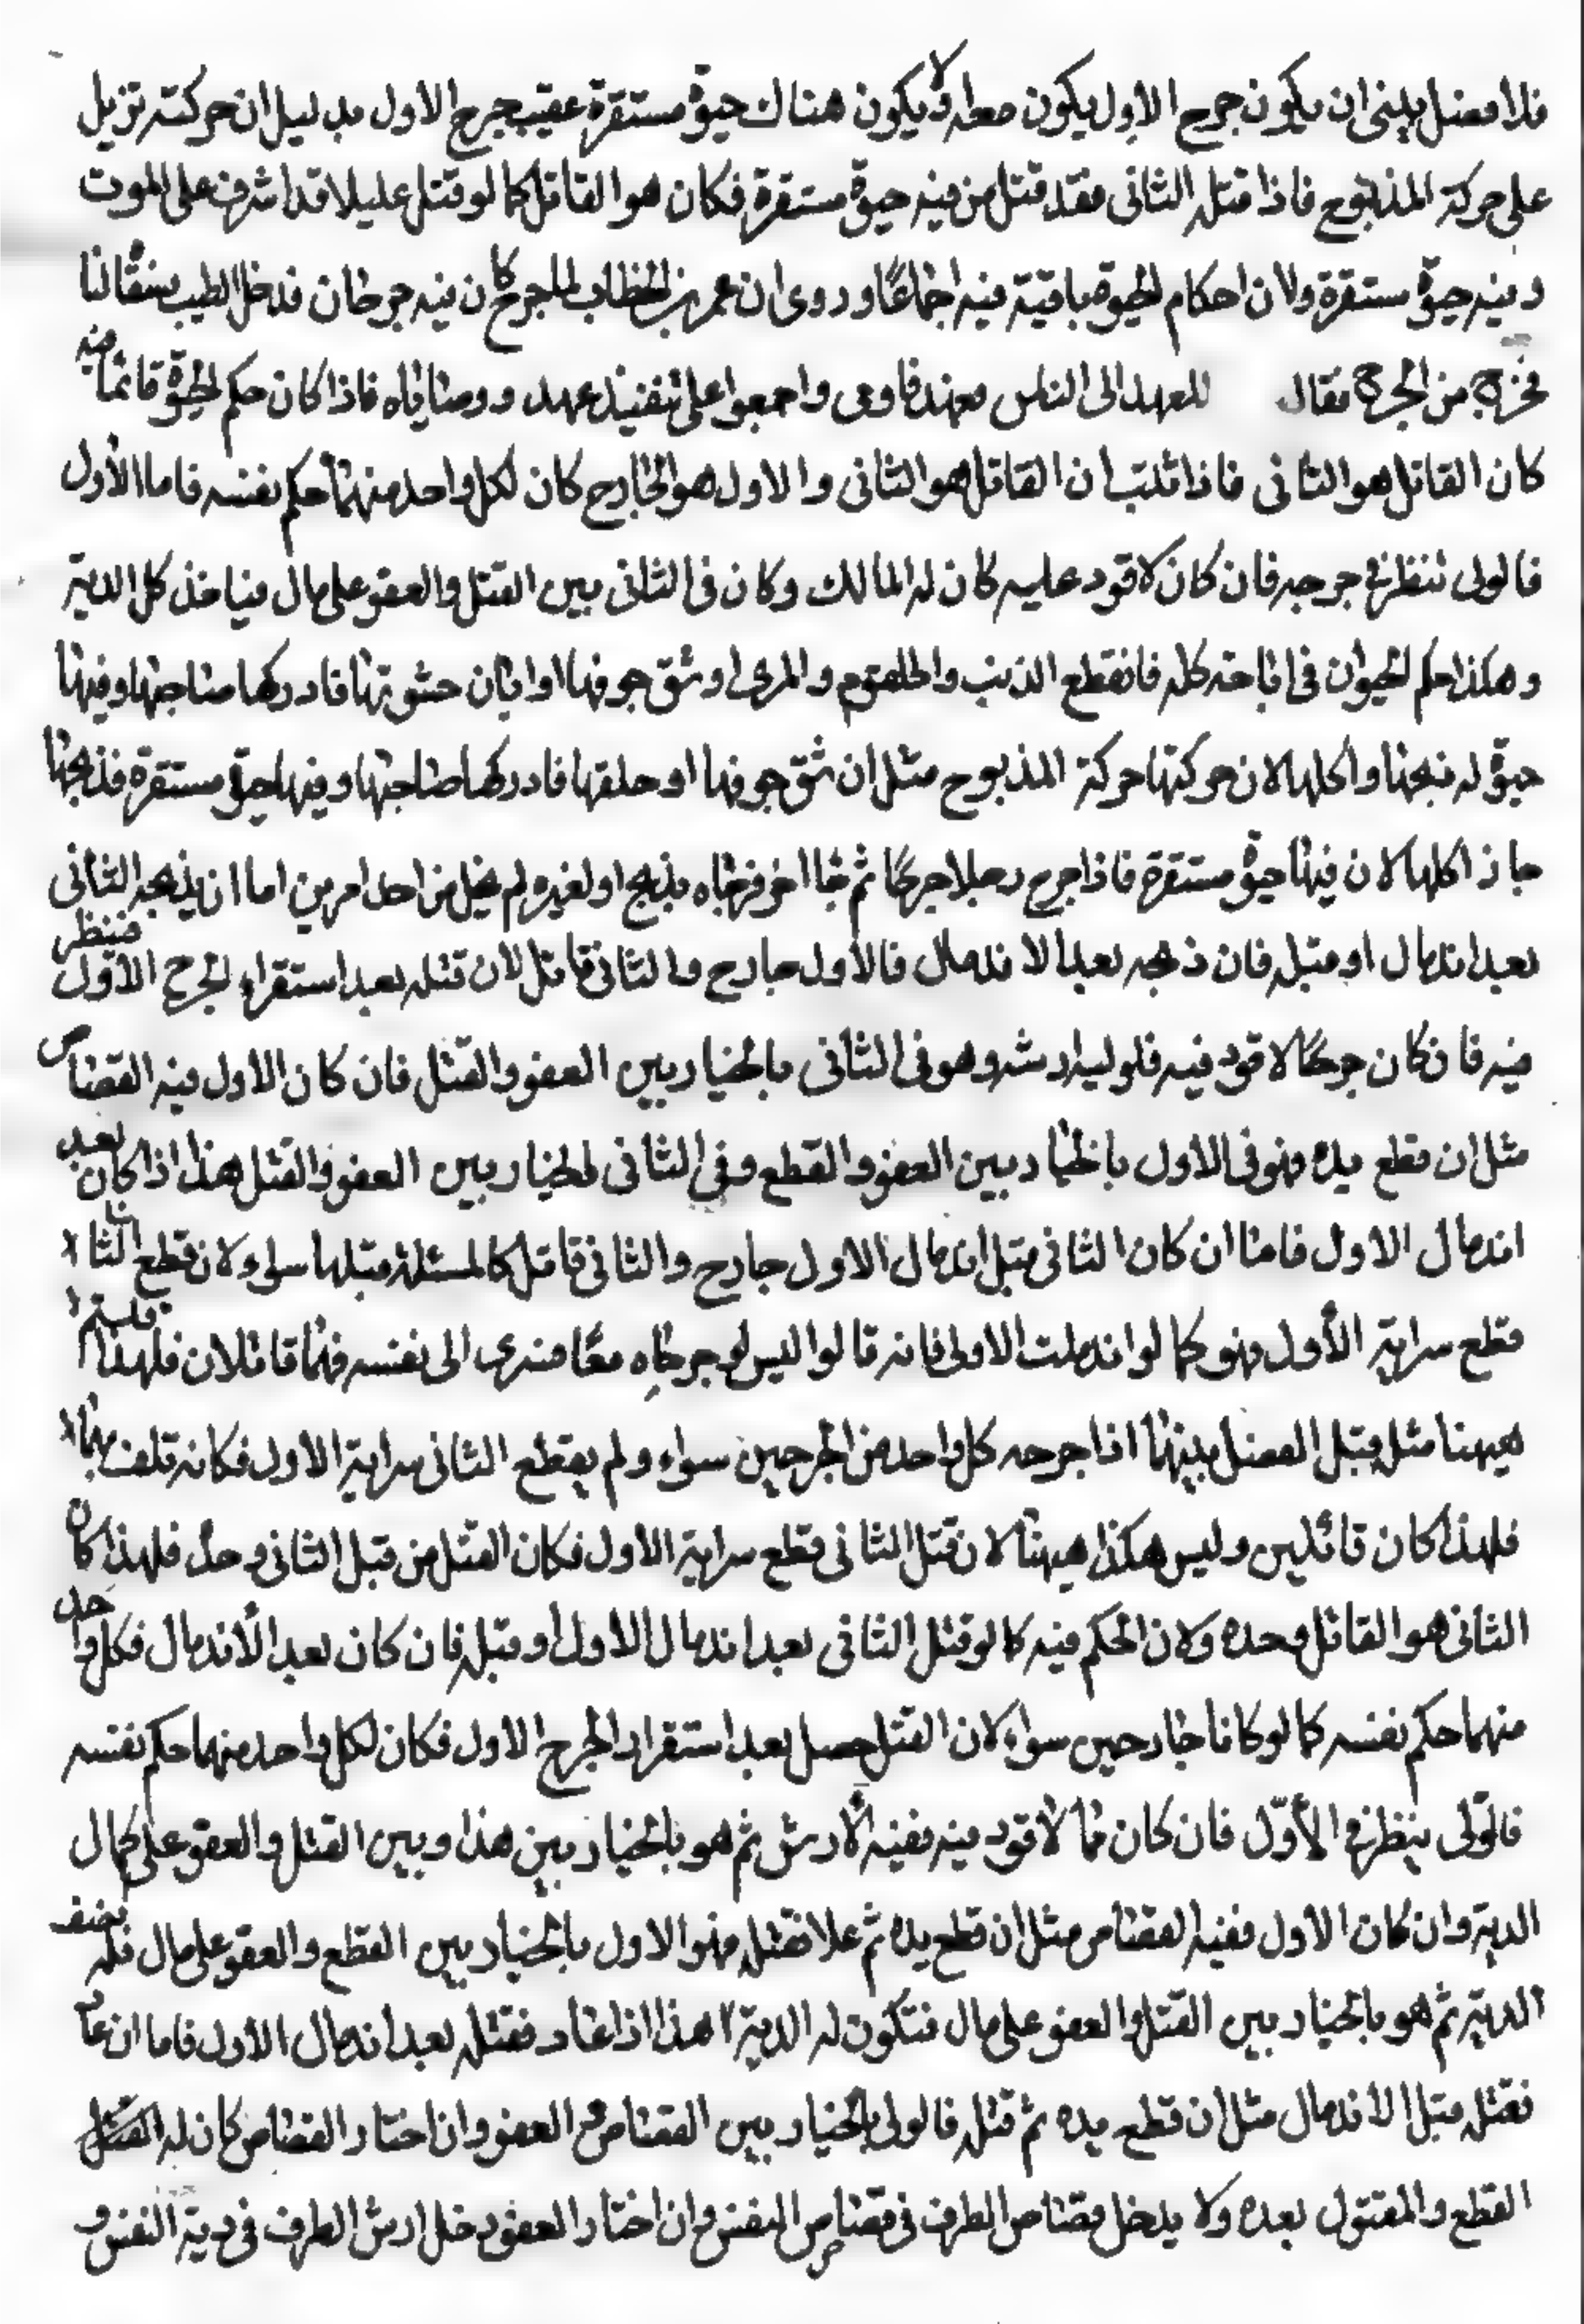 فلا فصل بين ان يكون جرح الاول يكون معه او لا يكون هناك حيوة مستقرة عقيب جرح الاول بدليل ان حركته تزيل
على حركة المذبوح فاذا قتله الثانى فقد قتل من فيه حيوة مستقرة فكان هو القاتل كما لو قتل عليلا قد اشرف على الموت
وفيه حيوة مستقرة ولان احكام الحيوة باقية فيه اجماعًا وروى ان عمر بن الخطاب لما جرح كان فيه جرحان فدخل الطبيب فسقاه لبنا
فخرج من الجرح فقال للعهد الى الناس فعهد فاوصى واجمعوا على تنفيذ عهده ووصاياه فاذا كان حكم الحيوة قائما فيه
كان القاتل هو الثانى فاذا ثبت ان القاتل هو الثانى والاول هو الجارح كان لكل واحد منهما حكم نفسه فاما الأول
فالولى ننظر فى جرحه فان كان لا قود عليه كان له المالك وكان فى الثانى بين القتل والعفو على مال فياخذ كل الدية
وهكذا حكم الحيوان فى اباحته كله فان قطع الذئب والحلقوم والمرى او شق جوفها او ابان حشوتها فادركها صاحبها وفيها
حيوة له ذبحها واكلها لان حركتها حركة المذبوح مثل ان شق جوفها او حلقها فادركها صاحبها وفيها حيوة مستقرة فذبحها
جاز اكلها لان فيها حيوة مستقرة فاذا جرح رجلا جرحًا ثم جا اخر فرماه بذبح او لغيره لم يخل من احد امرين اما ان يذبحه الثانى
بعد اندمال او قبله فان ذبحه بعد الاندمال فالأول جارح والثانى قاتل لان قتله بعد استقراء الجرح الأول فننظر
فيه فان كان جرحًا لا قود فيه فلوليه ارشه وهو فى الثانى بالخيار بين العفو والقتل فان كان الاول فيه القصاص
مثل ان قطع يده فهو فى الاول بالخيار بين العفو والقطع وفى الثانى الخيار بين العفو والقتل هذا اذا كان بعد
اندمال الاول فاما ان كان الثانى قبل اندمال الاول جارح والثانى قاتل كالمسئلة قبلها سواء لان قطع الثانى
قطع سراية الأول فهو كما لو اندملت الاولى فانه قالوا اليس لو جرحاه معًا فسرى الى نفسه فهما قاتلان فلهذا قلتم لا
هيهنا مثله قبل الفصل بينهما اذا جرحه كل واحد من الجرحين سواء ولم يقطع الثانى سراية الاول فكانه تلف بهما
فلهذا كان قاتلين وليس هكذا هيهنا لان قتل الثانى قطع سراية الاول فكان القتل من قبل الثانى وحده فلهذا كان
الثانى هو القاتل وحده ولان الحكم فيه كما لو قتل الثانى بعد اندمال الاول او قبله فان كان بعد الأندمال فكل واحد
منهما حكم نفسه كما لو كانا جارحين سواء لان القتل حصل بعد استقرار الجرح الاول فكان لكل واحد منهما حكم نفسه
فالولى ينظر فى الأول فان كان مما لا قود فيه ففيه الارش ثم هو بالخيار بين هذا وبين القتل والعفو على كمال
الدية وان كان الاول ففيه القصاص مثل ان قطع يده ثم علا فقتله فهو الاول بالخيار بين القطع والعفو على مال فله نصف
الدية ثم هو بالخيار بين القتل والعفو على مال فتكون له الدية هذا اذا عاد فقتله بعد اندمال الاول فاما ان عاد
فقتله قبل الاندمال مثل ان قطع يده ثم قتله فالولى بالخيار بين القصاص والعفو وان اختار القصاص كان له
القطع والمقتول بعده ولا يدخل قصاص الطرف فى قصاص النفس وان اختار العفو دخل ارش الطرف فى دية النفس و